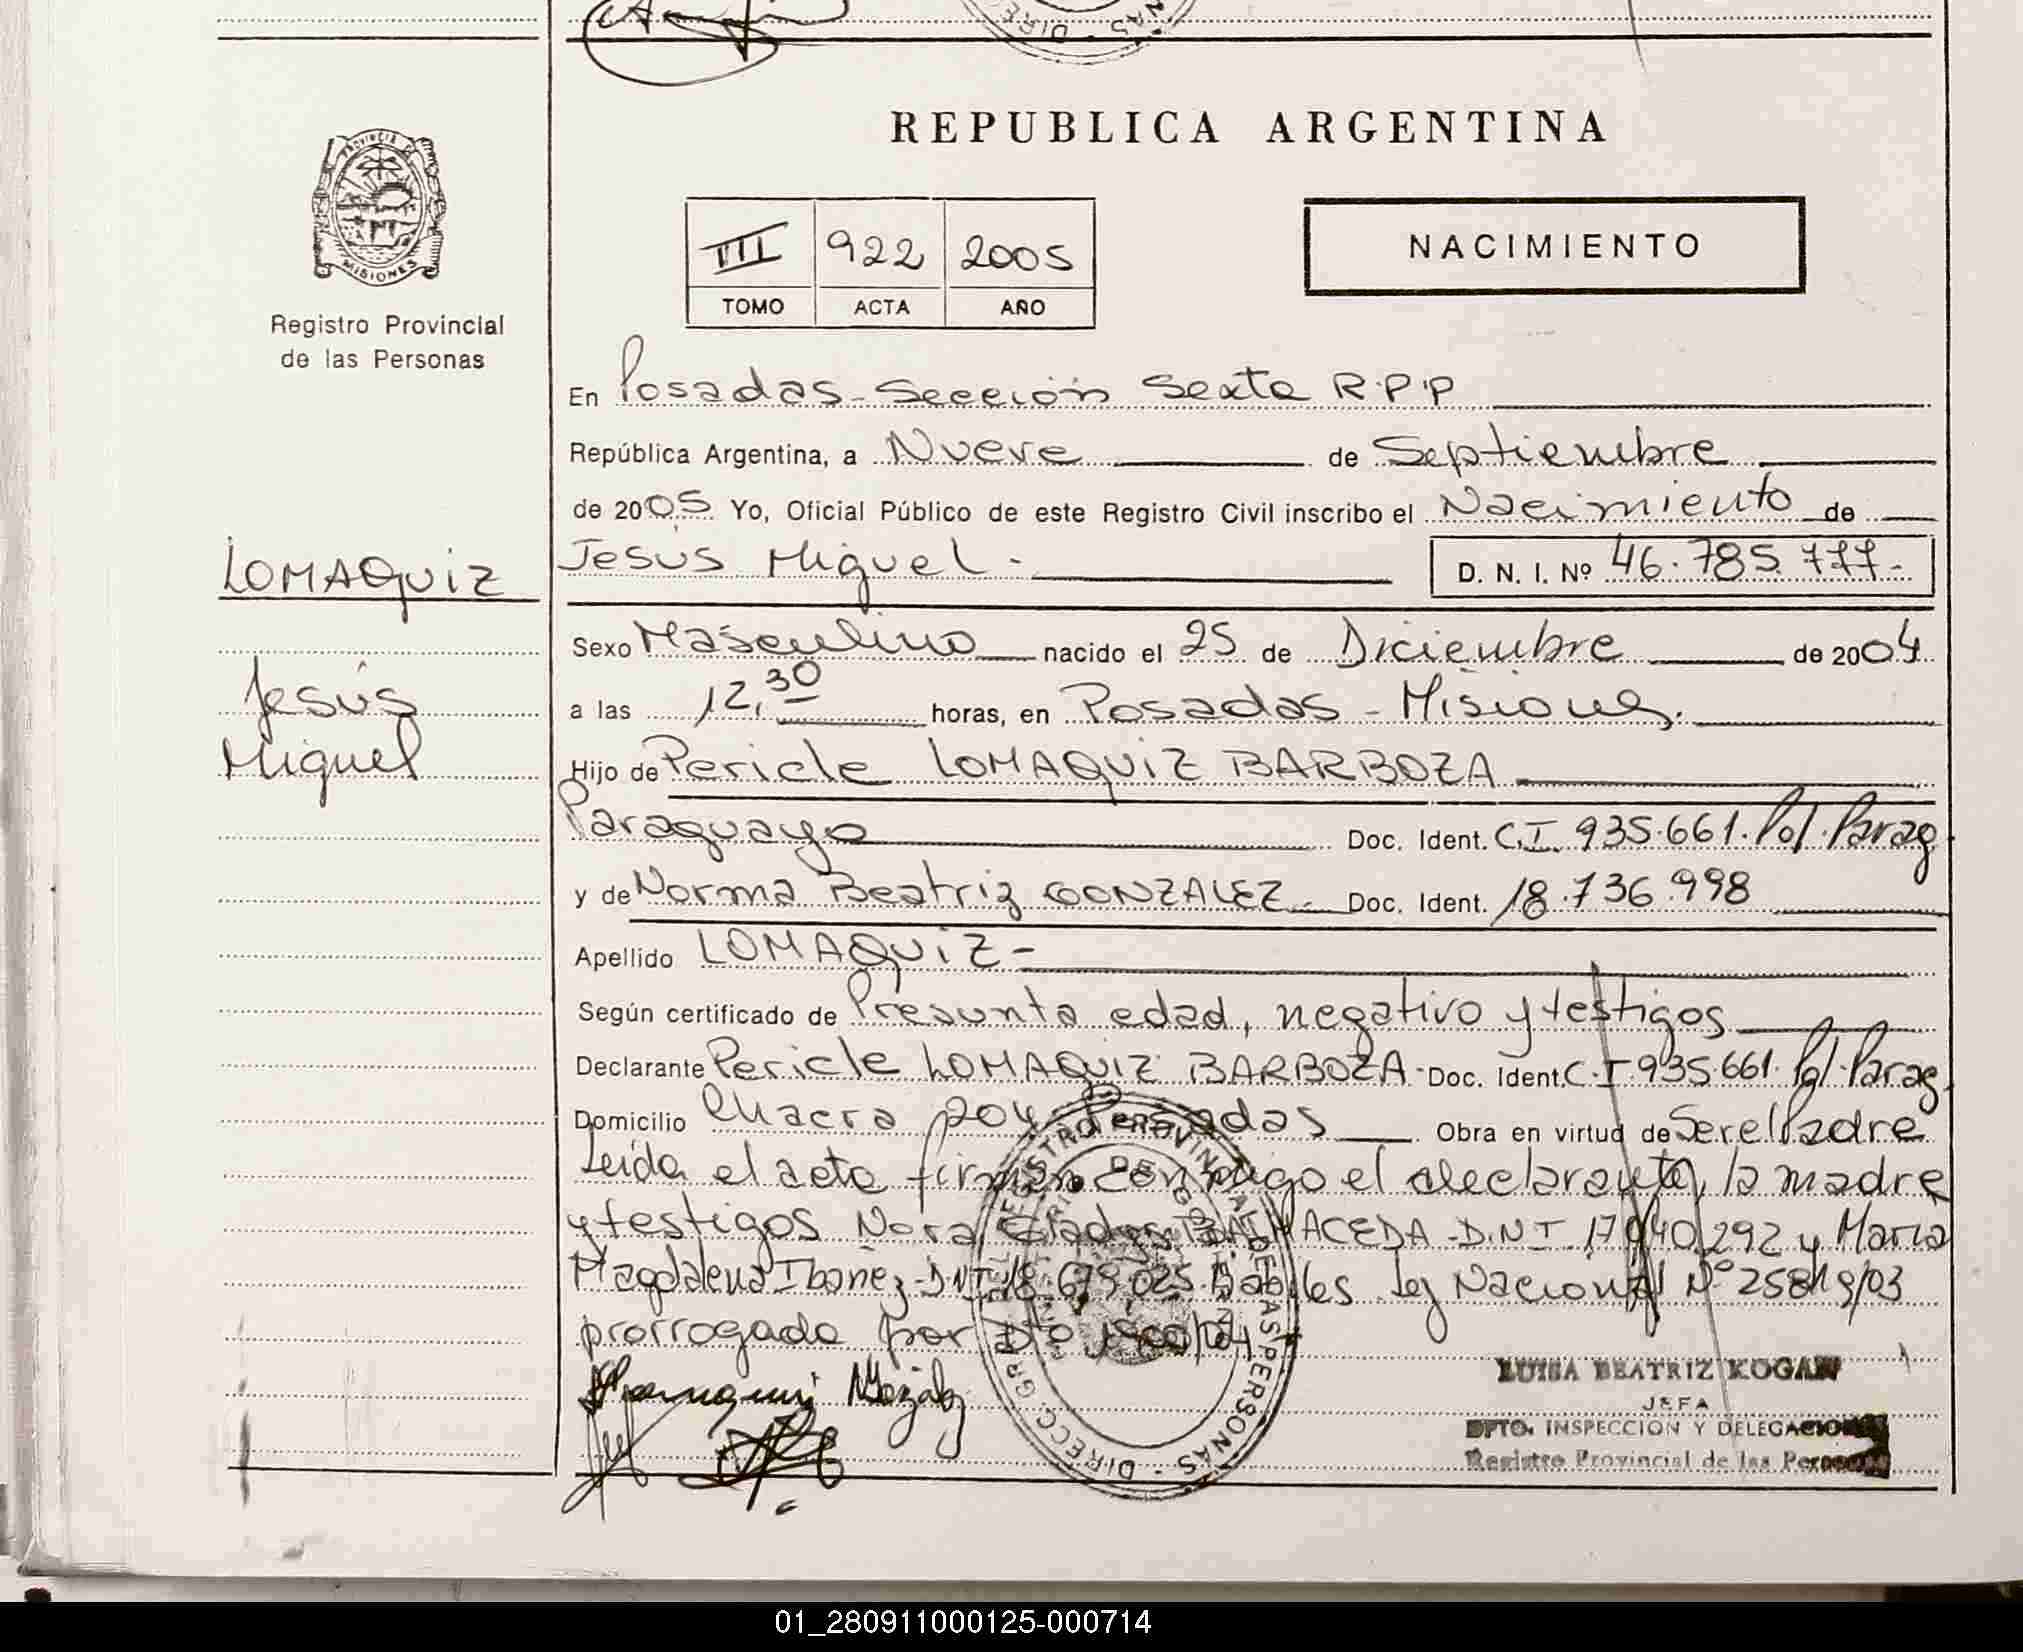 REPUBLICA ARGENTINA
PROVINCIA DE MISIONES
Registro Provincial
de las Personas
III 922 2005
TOMO ACTA AÑO
NACIMIENTO
En Posadas - Sección Sexta R.P.P
República Argentina, a Nueve de Septiembre
de 2005 Yo, Oficial Público de este Registro Civil inscribo el Nacimiento de
LOMAQUIZ
Jesús Miguel.- D. N. I. Nº 46.785.777.-
Sexo Masculino nacido el 25 de Diciembre de 2004
Jesús
a las 12,30 horas, en Posadas - Misiones.
Miguel
Hijo de Pericle LOMAQUIZ BARBOZA
Paraguayo Doc. Ident. C.I. 935.661. Pol. Parag.
y de Norma Beatriz GONZALEZ.- Doc. Ident. 18.736.998
Apellido LOMAQUIZ-
Según certificado de Presunta edad, negativo y testigos
Declarante Pericle LOMAQUIZ BARBOZA. Doc. Ident. C.I 935.661. Pol. Parag.
Domicilio Chacra 204 Posadas Obra en virtud de Ser el Padre
Leída el acta firman conmigo el declarante, la madre
y testigos Nora Gladys BALMACEDA - D.N.I. 17.040.292 y María
Magdalena Ibañez - D.N.I 18.679.025. Ley Nacional Nº 25819/03
prorrogado por Dto
LUISA BEATRIZ KOGAN
JEFA
DPTO. INSPECCION Y DELEGACIONES
Registro Provincial de las Personas
01_280911000125-000714